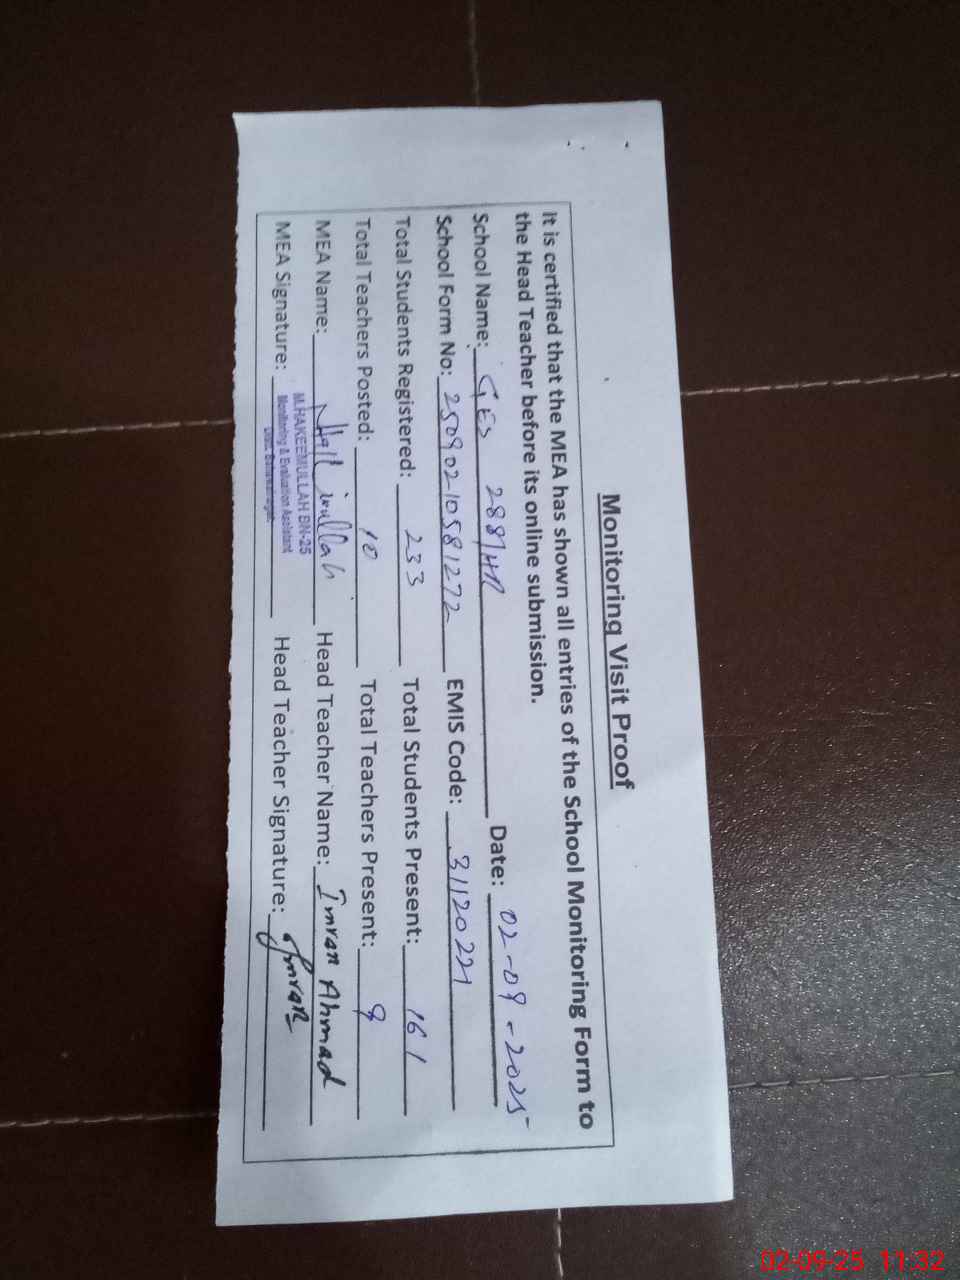 Monitoring Visit Proof
It is certified that the MEA has shown all entries of the School Monitoring Form to
the Head Teacher before its online submission.
School Name: GES 288/HR Date: 02-09-2025
School Form No: 25090210581272 EMIS Code: 31120221
Total Students Registered: 233 Total Students Present: 161
Total Teachers Posted: 10 Total Teachers Present: 9
MEA Name: Head Teacher Name: Imran Ahmad
M.HAKEEMULLAH BN-25
MEA Signature: Monitoring & Evaluation Assistant Head Teacher Signature: Imran
Distt. Bahawalnagar.
02-09-25 11:32